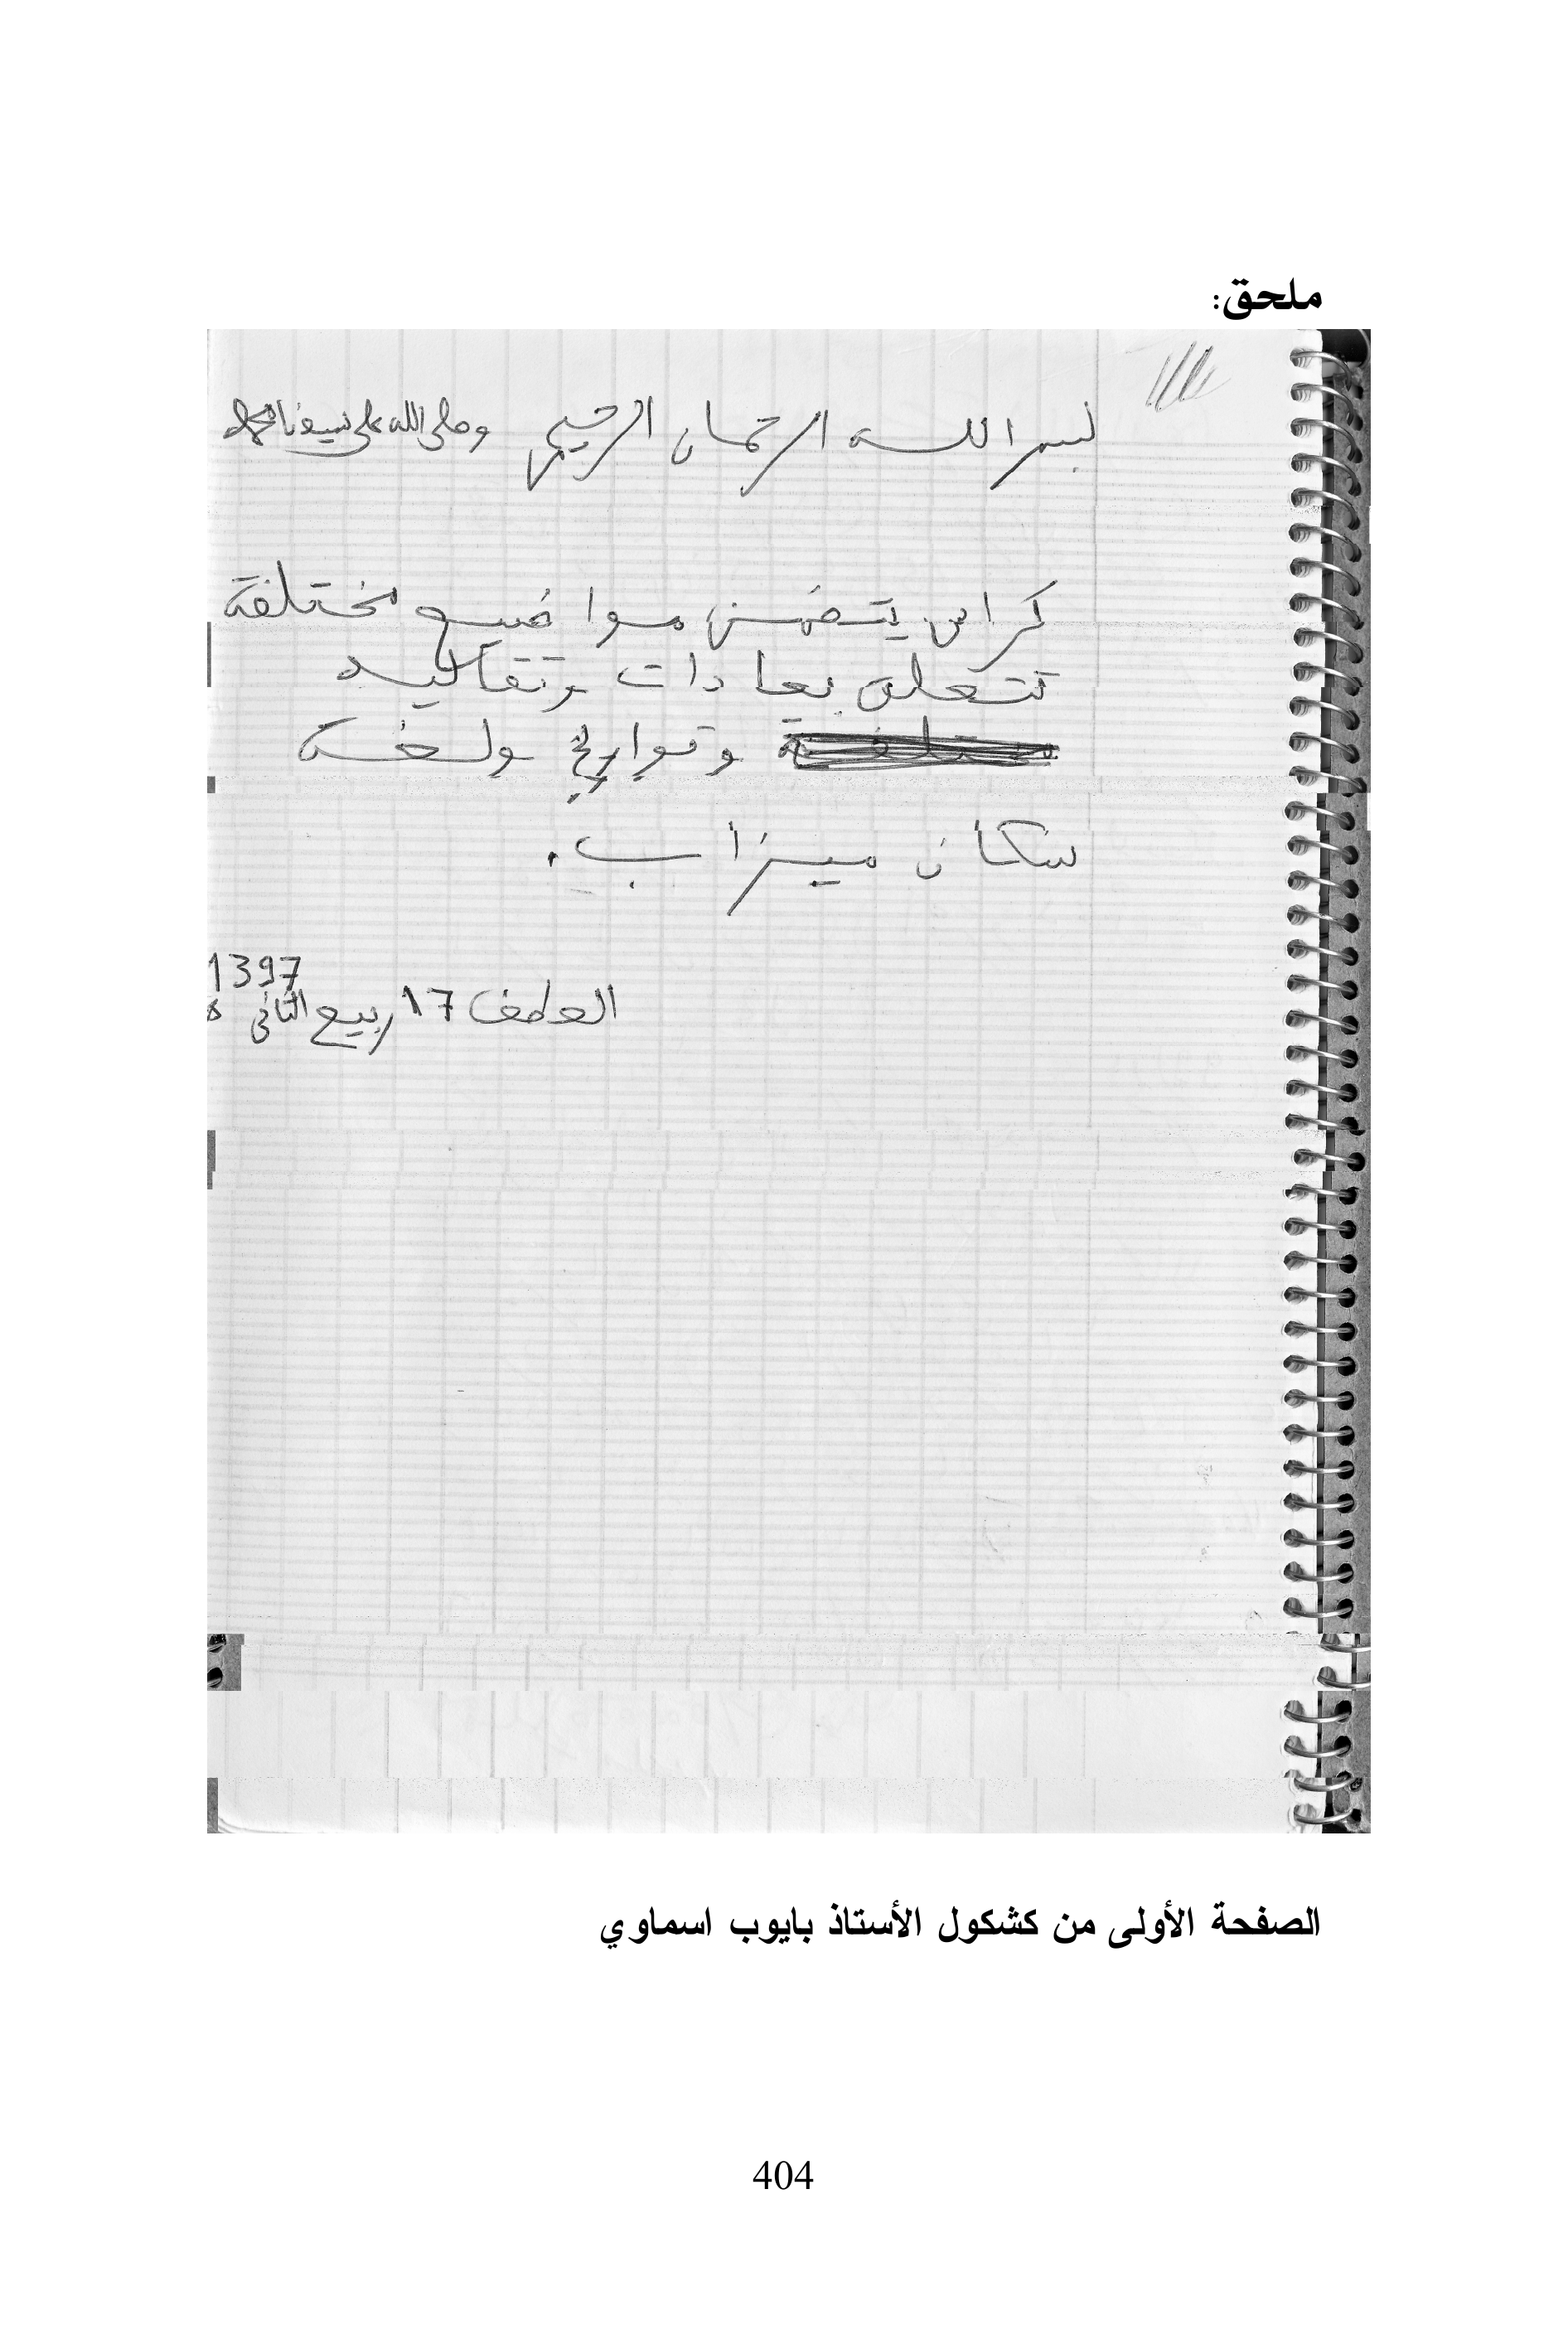 ملحق:
بسم الله الرحمان الرحيم وصلى الله على سيدنا محمد
كراس يتضمن مواضيع مختلفة
تتعلق بعادات وتقاليد
وتواريخ ولغة
سكان ميزاب.
1397
العطف 17 ربيع الثاني ه
الصفحة الأولى من كشكول الأستاذ بايوب اسماوي
404